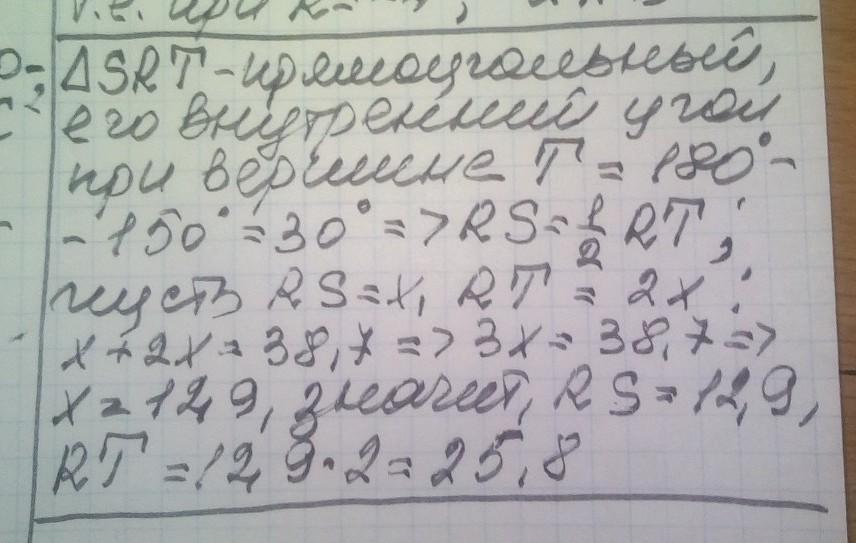 т.е. при
ΔSRT - прямоугольный,
его внутренний угол
при вершине T = 180° -
- 150° = 30° => RS = 1/2 RT;
пусть RS = x, RT = 2x:
x + 2x = 38,7 => 3x = 38,7 =>
x = 12,9, значит, RS = 12,9,
RT = 12,9 · 2 = 25,8